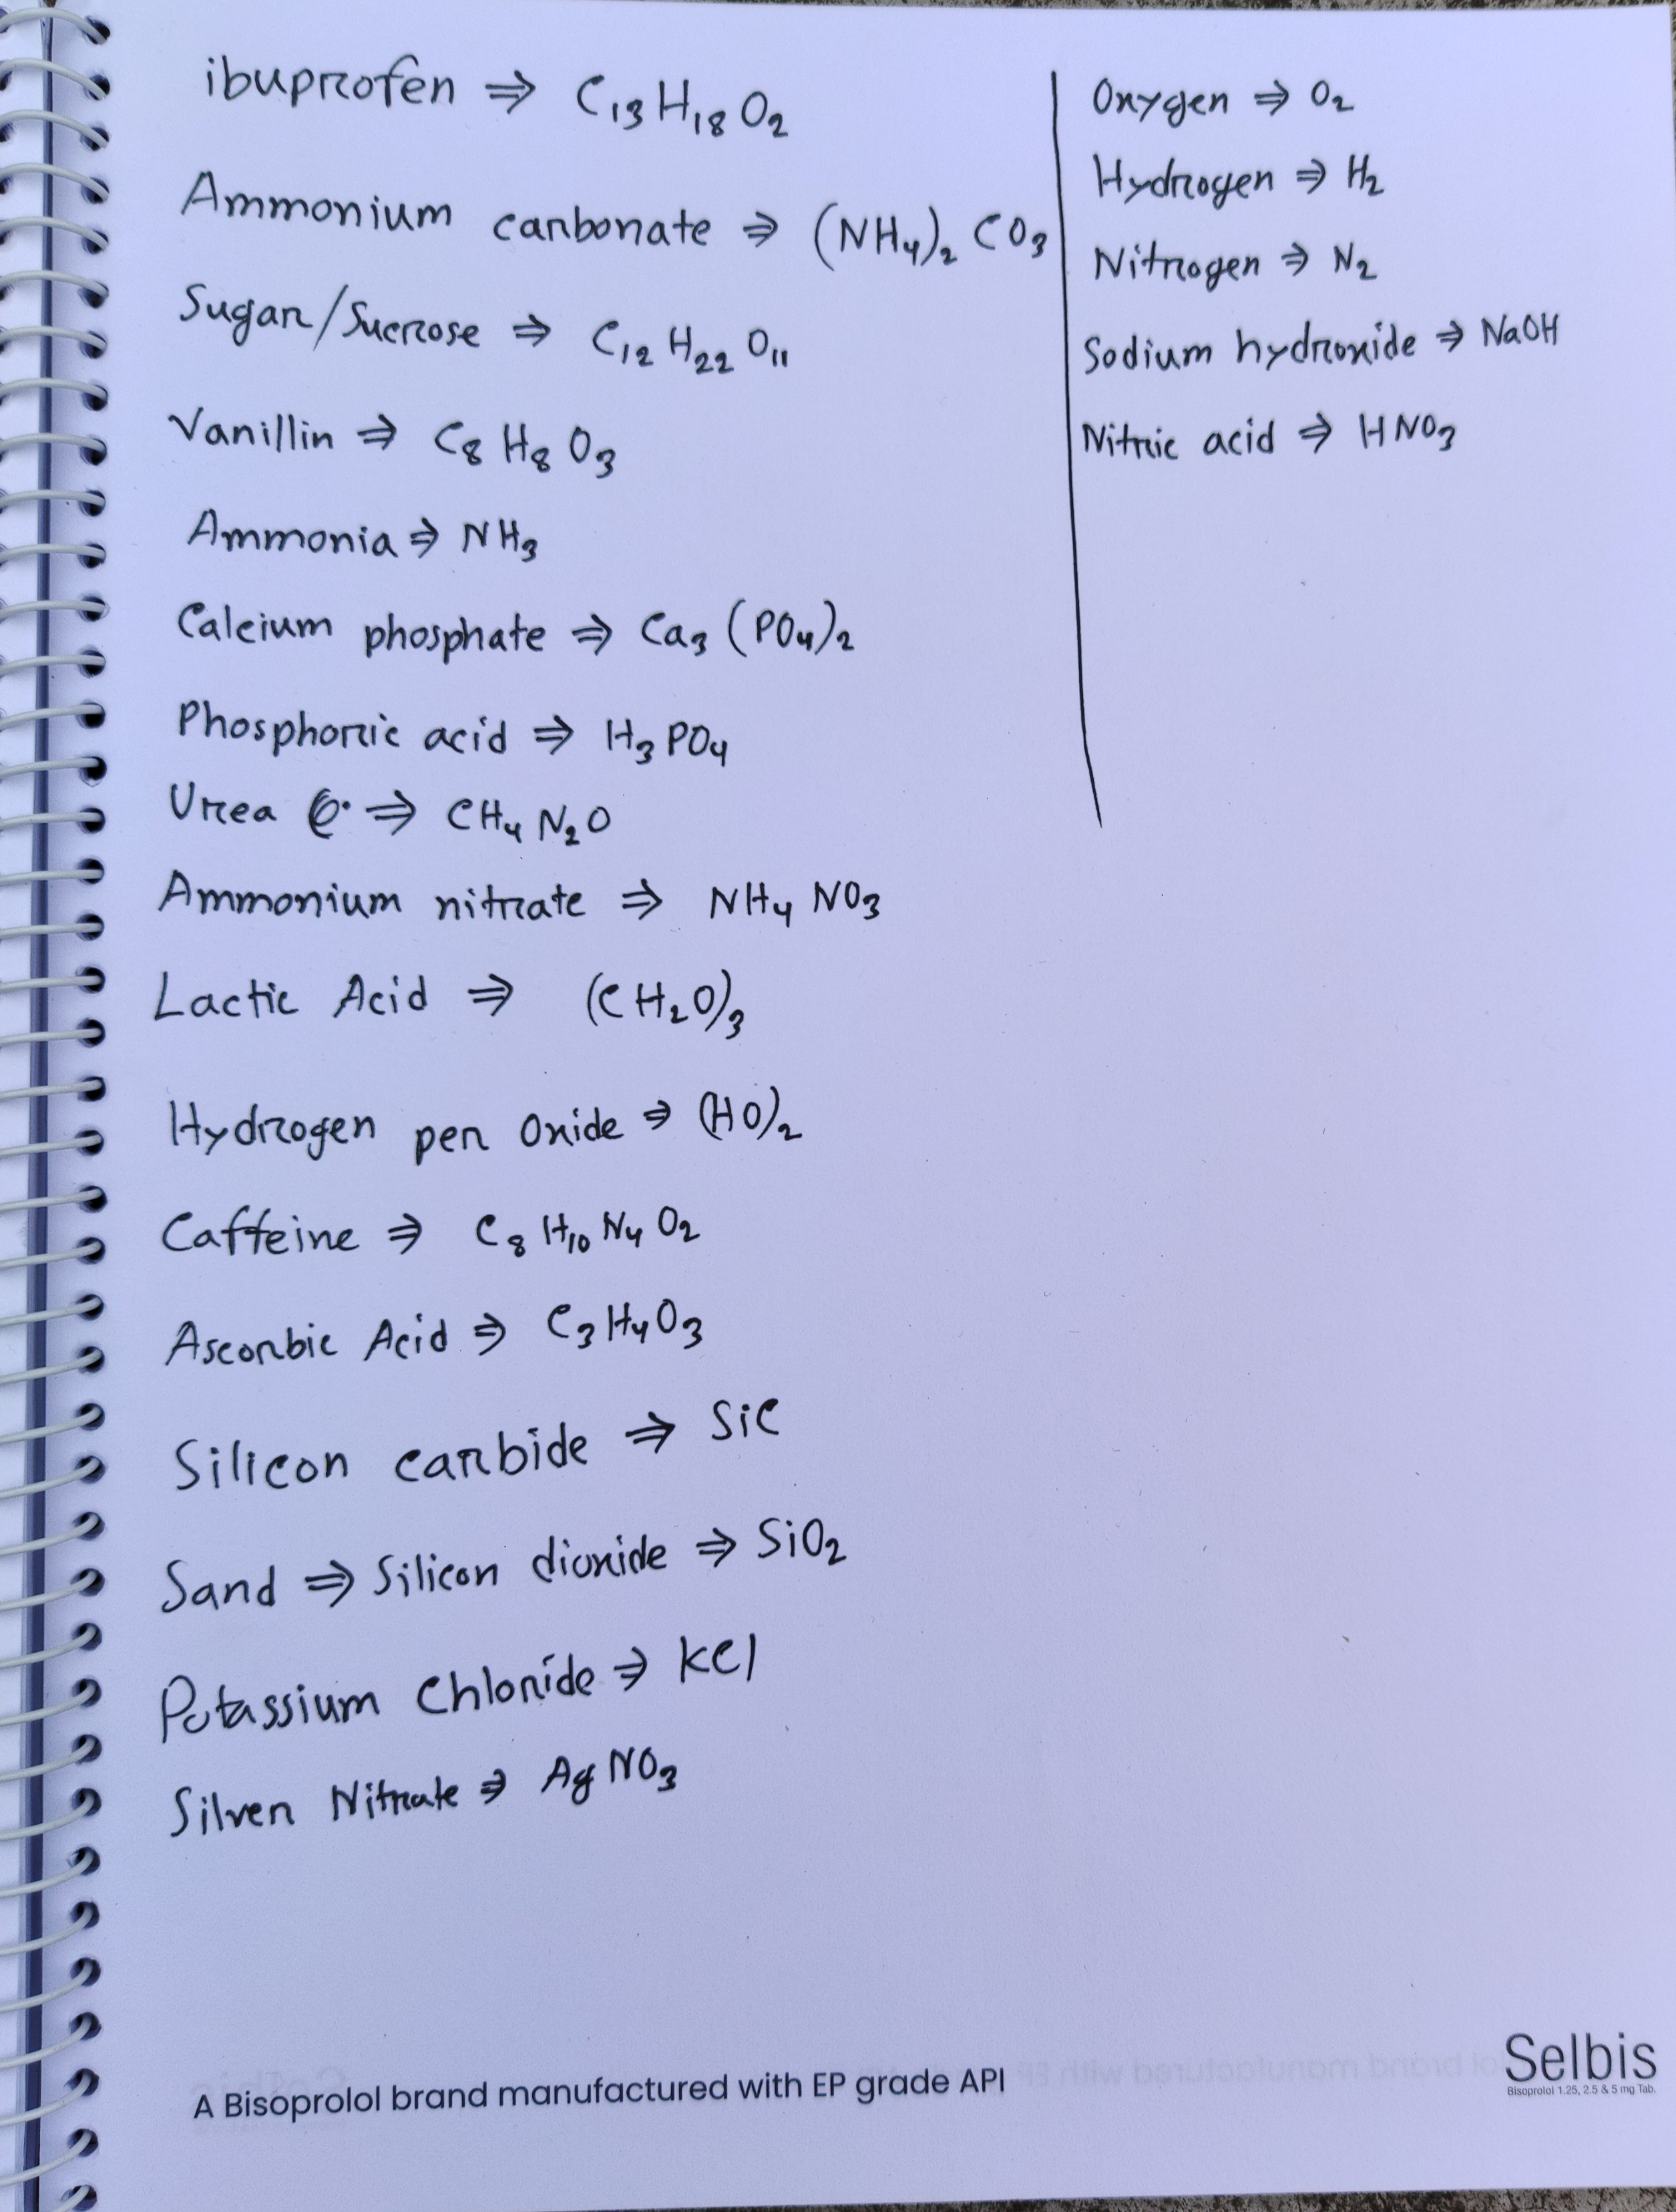 ibuprofen ⇒ C₁₃H₁₈O₂
Ammonium carbonate ⇒ (NH₄)₂ CO₃
Sugar/Sucrose ⇒ C₁₂ H₂₂ O₁₁
Vanillin ⇒ C₈ H₈ O₃
Ammonia ⇒ NH₃
Calcium phosphate ⇒ Ca₃ (PO₄)₂
Phosphoric acid ⇒ H₃PO₄
Urea ⇒ CH₄ N₂O
Ammonium nitrate ⇒ NH₄ NO₃
Lactic Acid ⇒ (CH₂O)₃
Hydrogen per Oxide ⇒ (HO)₂
Caffeine ⇒ C₈ H₁₀ N₄ O₂
Ascorbic Acid ⇒ C₃H₄O₃
Silicon carbide ⇒ SiC
Sand ⇒ Silicon dioxide ⇒ SiO₂
Potassium Chloride ⇒ KCl
Silver Nitrate ⇒ AgNO₃
Oxygen ⇒ O₂
Hydrogen ⇒ H₂
Nitrogen ⇒ N₂
Sodium hydroxide ⇒ NaOH
Nitric acid ⇒ HNO₃
A Bisoprolol brand manufactured with EP grade API
Selbis
Bisoprolol 1.25, 2.5 & 5 mg Tab.